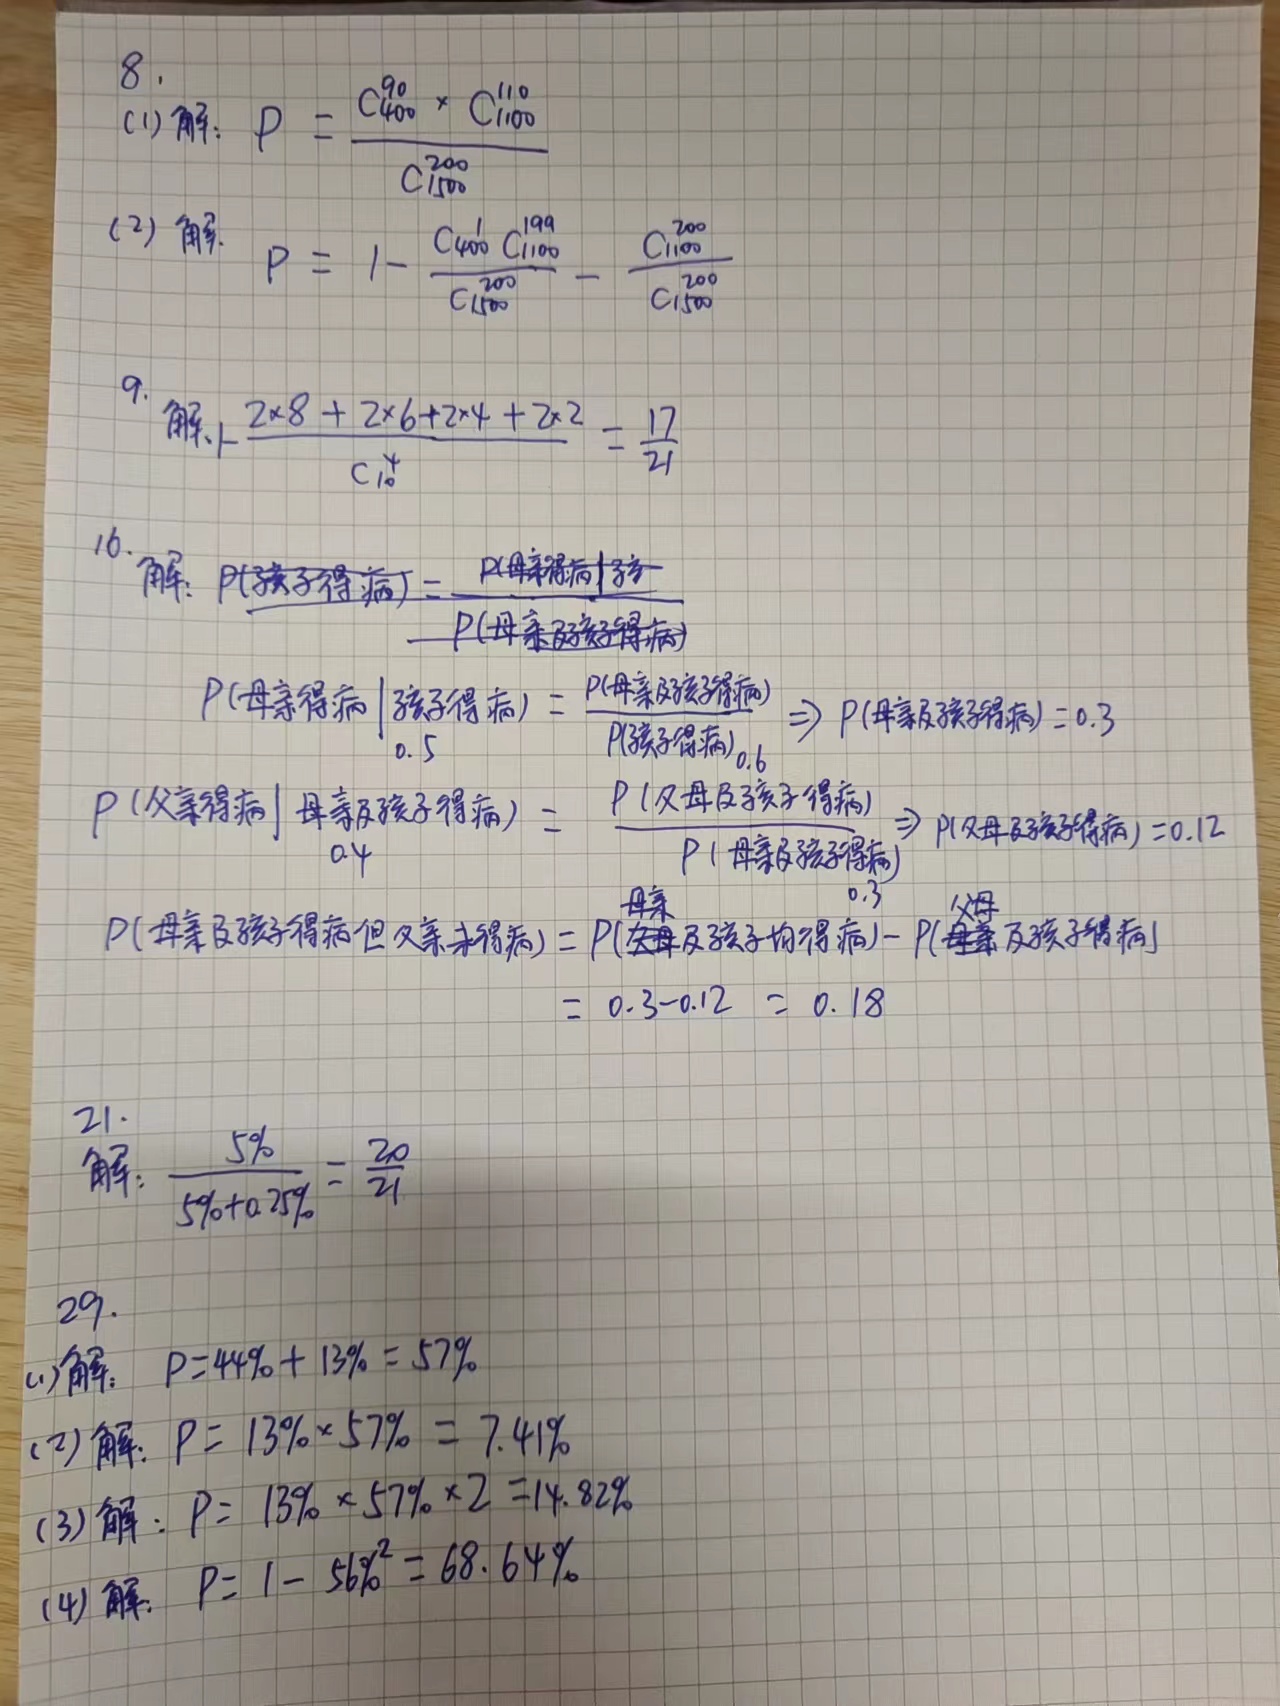 8.
(1) 解: P = (C_400^90 × C_1100^110) / C_1500^200
(2) 解. P = 1 - (C_400^1 C_1100^199) / C_1500^200 - C_1100^200 / C_1500^200
9.
解. 1- (2×8 + 2×6+2×4 + 2×2) / C_10^4 = 17/21
16.
解: P(孩子得病) = P(母亲得病|孩子 / P(母亲及孩子得病)
P(母亲得病|孩子得病) = P(母亲及孩子得病) / P(孩子得病) ⇒ P(母亲及孩子得病)=0.3
0.5 0.6
P(父亲得病|母亲及孩子得病) = P(父母及孩子得病) / P(母亲及孩子得病) ⇒ P(父母及孩子得病)=0.12
0.4 0.3
P(母亲及孩子得病但父亲未得病) = P(母亲及孩子均得病) - P(父母及孩子得病)
= 0.3-0.12 = 0.18
21.
解: 5% / (5%+0.25%) = 20/21
29.
(1) 解: P=44%+13%=57%
(2) 解: P= 13%×57% = 7.41%
(3) 解: P= 13%×57%×2=14.82%
(4) 解. P= 1-56%² = 68.64%